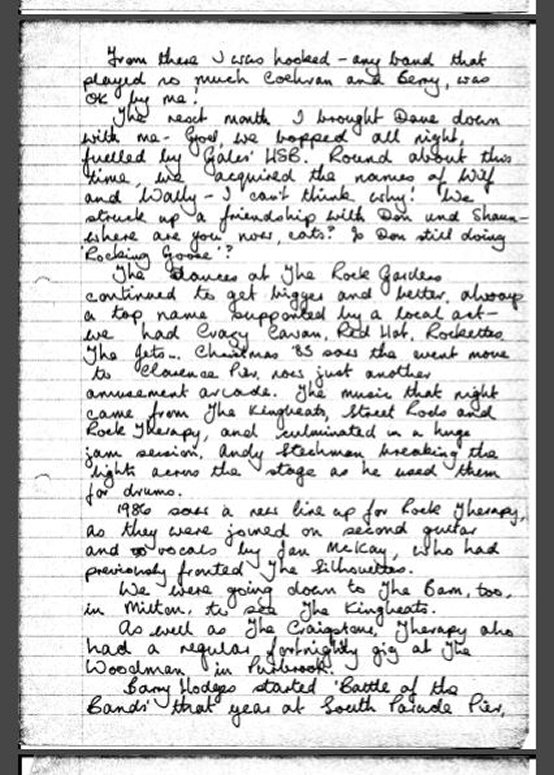 From there I was hooked - any band that
played so much Cochran and Berry, was
OK by me!
The next month I brought Dave down
with me. God, we bopped all night,
fuelled by Gales' HSB. Round about this
time, we acquired the names of Wilf
and Wally - I can't think why! We
struck up a friendship with Don and Shaun -
where are you now, cats? Is Don still doing
'Rocking Goose'?
The dances at The Rock Gardens
continued to get bigger and better, always
a top name supported by a local act -
we had Crazy Cavan, Red Hot, Rockettes
The Jets... Christmas '85 saw the event move
to Clarence Pier, now just another
amusement arcade. The music that night
came from The Kingbeats, Street Rods and
Rock Therapy, and culminated in a huge
jam session, Andy Stechman breaking the
lights across the stage as he used them
for drums.
1986 saw a new line up for Rock Therapy,
as they were joined on second guitar
and vocals by Jan McKay, who had
previously fronted The Silhouettes.
We were going down to The Barn, too,
in Milton, to see The Kingbeats.
As well as The Craigstone, Therapy also
had a regular fortnightly gig at The
Woodman in Purbrook.
Barry Hodges started 'Battle of the
Bands' that year at South Parade Pier,